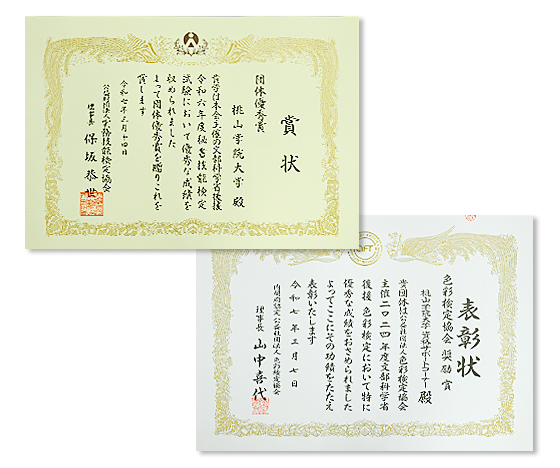 賞状
団体優秀賞
桃山学院大学 殿
貴学は本会主催の文部科学省後援
令和六年度秘書技能検定
試験において優秀な成績を
収められました
よって団体優秀賞を贈りこれを
賞します
令和七年三月十四日
公益財団法人実務技能検定協会
理事長 保坂恭世
表彰状
色彩検定協会 奨励賞
桃山学院大学 資格サポートコーナー 殿
貴団体は公益社団法人色彩検定協会
主催二〇二四年度文部科学省
後援 色彩検定において特に
優秀な成績をおさめられました
よってここにその功績をたたえ
表彰いたします
令和七年三月七日
内閣府認定 公益社団法人 色彩検定協会
理事長 山中喜代